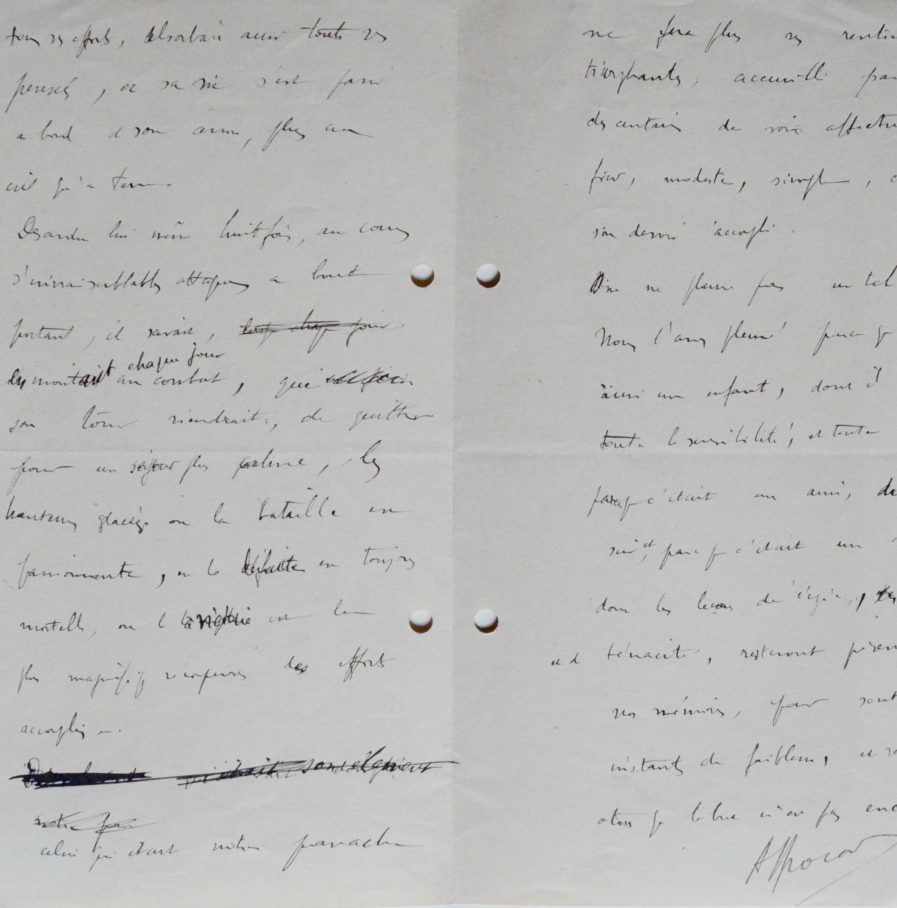 tous ses efforts, absorbait aussi toutes ses
pensées, et sa vie s'est passée
a bord de son avion, plus au
ciel qu'a terre.
Descendu lui même huit fois, au cours
d'invraisemblables attaques a bout
portant, il savait,
en montant chaque jour au combat, que
son tour viendrait, de quitter
pour un séjour plus calme, les
hauteurs glacées ou la bataille est
passionnante, ou la défaite est toujours
mortelle, ou la est la
plus magnifique récompense des efforts
accomplis.
était
notre
celui qui était notre panache
ne fera plus ses rentrées
triomphantes, accueilli par
des centaines de voix
fier, modeste, simple,
son devoir accompli.
ne pleure pas un tel
Nous l'avons pleuré parce que
ainsi un enfant, dont il
toute la sensibilité, et toute
parce que c'était un ami,
et parce que c'était un
dont les leçons de
et de ténacité, resteront
nos mémoires, pour
instants de faiblesse, et
alors que le but n'est pas